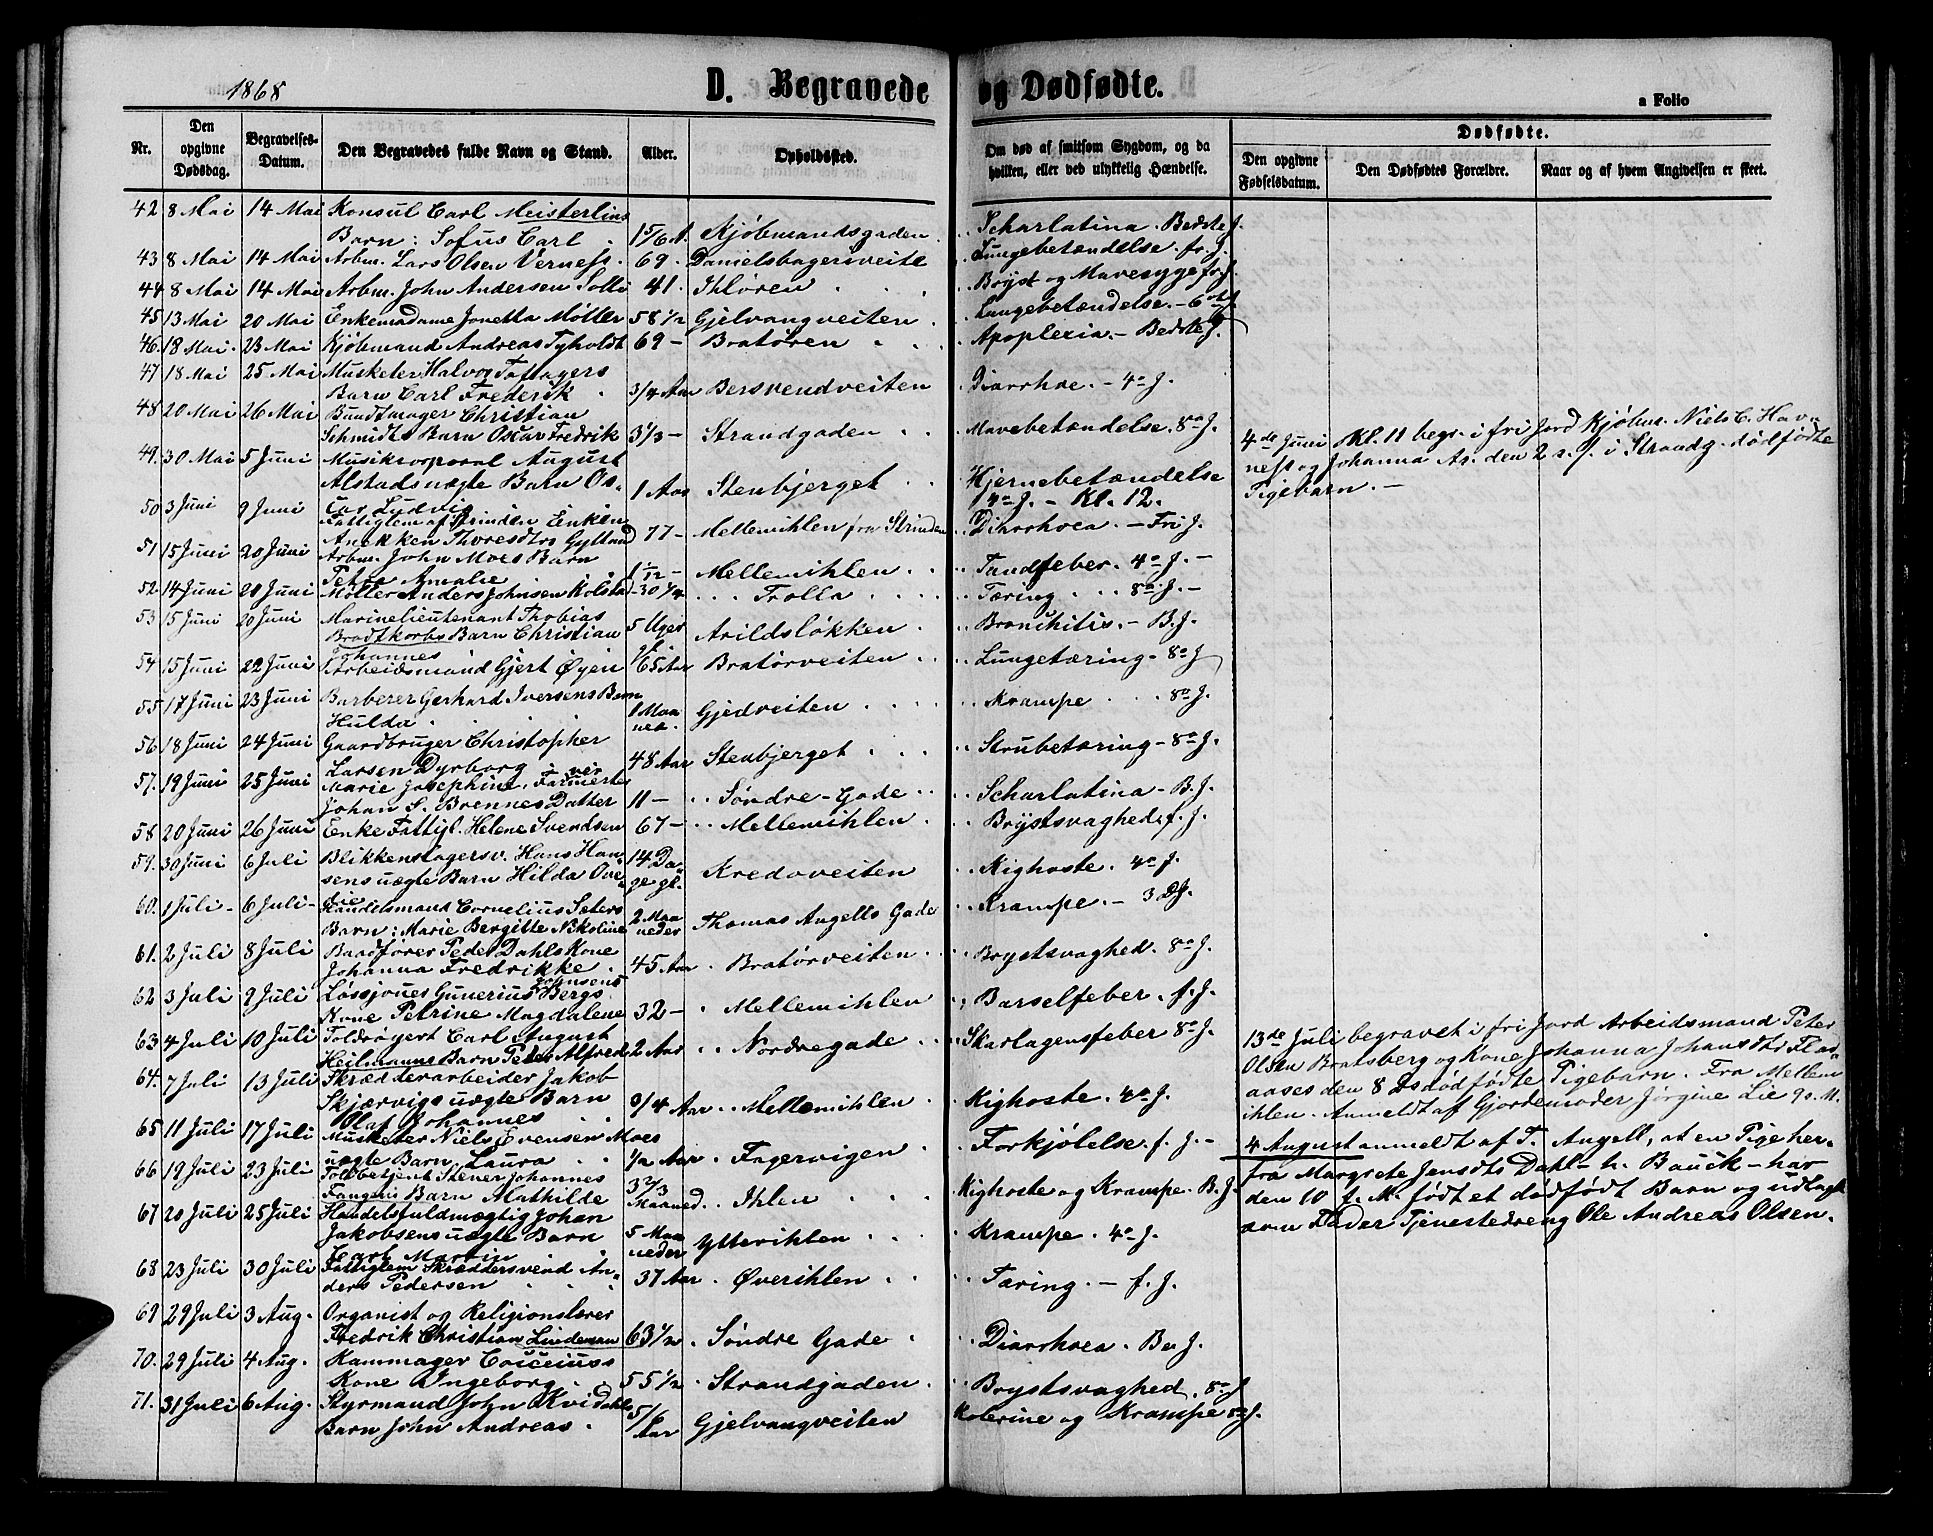 1868
D. Begravede og Dødfødte.
a Folio
Nr.
Den opgivne Dødsdag.
Begravelses-Datum.
Den Begravedes fulde Navn og Stand.
Alder.
Opholdssted.
Om død af smitsom Sygdom, og da hvilken, eller ved ulykkelig Hændelse.
Dødfødte.
Den opgivne Fødselsdatum.
Den Dødfødtes Forældre.
Naar og af hvem Angivelsen er skeet.
42 8 Mai 14 Mai Konsul Carl Meisterlins
Barn: Sofus Carl 1 5/6 A. Kjøbmandsgaden. Scharlatina. Bedste J.
43 8 Mai 14 Mai Arbm. Lars OlsenVerness. 69. Danielsbagerisveite Lungebetændelse. fr. J.
44 8 Mai 14 Mai Arbm. John Andersen Solli 41. Ihløren Bryst og Mavesyge fr. J.
45 13 Mai 20 Mai Enkemadame Jonetta Møller 58 1/2 Gjelvangveiten. Lungebetændelse. - 6 J.
46. 18 Mai. 23 Mai Kjøbmand Andreas Tyholdt 69 - Bratøren Apoplexia. - Bedste J.
47 18 Mai 25 Mai Musketer Halvor Fossagers
Barn Carl Frederik 3/4 Aar Bersvendveiten Diarrhoe. - 4a J.
48 20 Mai 26 Mai Bundtmager Christian
Schmidts Barn Oscar Fredrik 3 1/3 - Strandgaden Mavebetændelse. 8a J.
49. 30 Mai 5 Juni Musikcorporal August
Alstads uægte Barn Os-
car Ludvig 1 Aar Stenbjerget Hjernebetændelse
4a J. - Kl. 12.
50 3 Juni 9 Juni Fattiglem af Strinden Enken
Anekken Thoresdtr Gylland 77 - Mellemihlen fra Strinden Diarrhoea. - Fri J.
51 15 Juni 20 Juni Arbm. John Moes Barn
Petra Amalie 1 1/12 - Mellemihlen Tandfeber. 4a J. -
52. 14 Juni 20 Juni Møller Anders Johnsen Kolstad 30 1/4 Trolla Tæring 8a J. -
53 15 Juni 20 Juni Marinelieutenant Thobias
Brodtkorbs Barn Christian
Johannes 5 Uger Arildsløkken Bronchitis. - B. J.
54 15 Juni 22 Juni Arbeidsmand Gjert Øyen 65 Aar Bratørveiten Lungetæring - 8a J
55 17 Juni 23 Juni Barberer Gerhard Iversens Barn
Hulda 1 Maaned. Gjedveiten Krampe 8a J.
56 18 Juni 24 Juni Gaardbruger Christopher
Larsen Dyrborg 48 Aar Stenbjerget Strubetæring - 8a J.
57. 19 Juni 25 Juni Marie Josephine,
Johan S. Brennes Datter 11 - Søndre-Gade Scharlatina - B. J.
58 20 Juni 26 Juni Enke Fattigl. Helene Svendsen 67 - Mellemihlen Brystsvaghed, f. J.
59. 30 Juni 6 Juli Blikkenslagersv. Hans Han-
sens uægte Barn Hilda Ove-
die 14 Dage gl. Kredoveiten Kighoste. 4a J.
60. 1 Juli - 6 Juli - Handelsmand Cornelius Seters
Barn: Marie Bergitte Nikoline 2 Maaneder Thomas Angells Gade Krampe. - 3 J.
61. 2 Juli 8 Juli Baadfører Peder Dahls Kone
Johanna Fredrikke 45 Aar Bratørveiten Brystsvaghed. 8a J.
62 3 Juli 9 Juli Løssjouer Gunerius Johnsens Bergs
Kone Petrine Magdalene 32 - Mellemihlen Barselfeber. f. J.
63 4 Juli 10 Juli Toldrøyert Carl August
Heilmanns Barn Peter Alfred 2 Aar Nordregade Skarlagensfeber 8a J.
64. 7 Juli 13 Juli Skrædderarbeider Jakob
Skjærvigs uægte Barn
Olaf Johannes 3/4 Aar Mellemihlen Kighoste. 4a J.
65 11 Juli 17 Juli Musketer Niels Evensen Moes
uægte Barn Laura 1/2 Aar Fagervigen Forkjølelse. f. J. -
66 19 Juli 23 Juli Toldbetjent Stener Johannes
Fangens Barn Mathilde 3 2/3 Maaned Ihlen Kighoste og Krampe. B. J.
67 20 Juli 25 Juli Handelsfuldmægtig Johan
Jakobsens uægte Barn
Carl Martin 5 Maaneder Ytterihlen Krampe. 4a J.
68 23 Juli 30 Juli Fattiglem Skræddersvend An-
ders Pedersen 37 Aar Øverihlen Tæring. - f. J.
69 29 Juli 3 Aug. Organist og Religionslærer
Fredrik Christian Lindeman 63 1/2 Søndre Gade Diarrhoea. Be. J.
70. 29 Juli 4 Aug. Kammager Cocceiuss
Kone Ingeborg 55 1/2 Strandgaden Brystsvaghed, 8a J
71. 31 Juli 6 Aug. Styrmand John Kvidahls
Barn John Andreas 5/6 Aar Gjelvangveiten Kolerine og Krampe 8a J.
4de Juni Kl. 11 begr. i fri Jord Kjøbm. Niels C. Hav-
ness og Johanna As. den 2 s. J. i Strandg. dødfødte
Pigebarn. -
13de Juli begravet i fri Jord Arbeidsmand Peter
Olsen Bratsberg og Kone Johanna Johansdtr Flad-
aases den 8 Ds dødfødte Pigebarn. Fra Mellem
ihlen. Anmeldt af Gjordemoder Jørgine Lie 9 s. M.
4 August anmeldt af T. Angell, at en Pige her-
fra Margrete Jensdtr Dahl - h. Bauck - har
den 10 f. M. født et dødfødt Barn og udlagt
som Fader Tjenestedreng Ole Andreas Olsen.